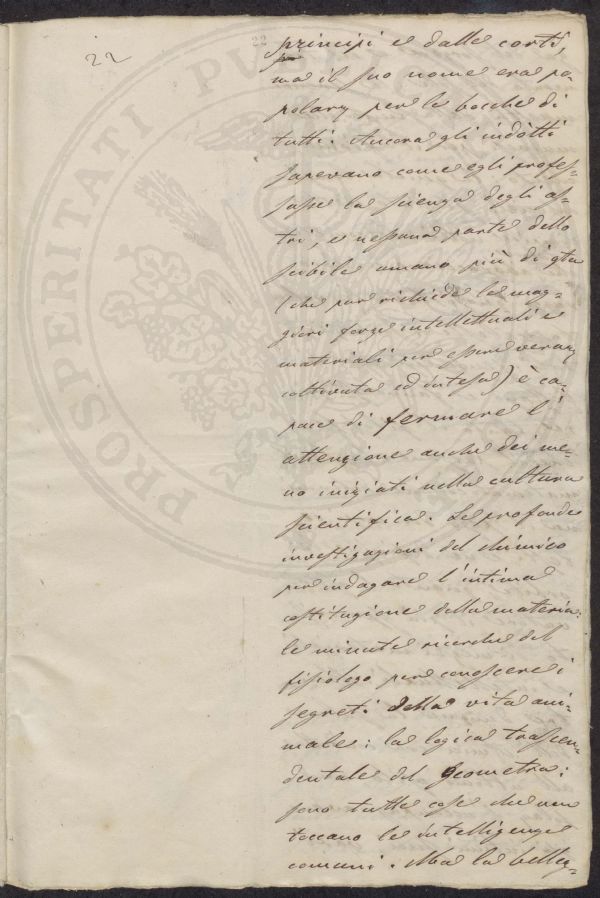 22
22
principi e dalle corti,
ma il suo nome era po-
polarz per le bocche di
tutti. Ancora gli indòtti
sapevano come egli profes-
sasse la scienza degli as-
tri, e nessuna parte dello
scibile umano più di qta
(che pur richiede le mag-
giori forze intellettuali e
materiali per essere veramz
coltivata ed intesa) è ca-
pace di fermare l'
attenzione anche dei me-
no iniziati nella cultura
scientifica. Le profonde
investigazioni del chimico
per indagare l'intima
costituzione della materia:
le minute ricerche del
fisiologo per conoscere i
segreti della vita ani-
male: la logica trascen-
dentale del geometra:
sono tutte cose che non
toccano le intelligenze
comuni. Ma la bellez-
PROSPERITATI PUBLICAE